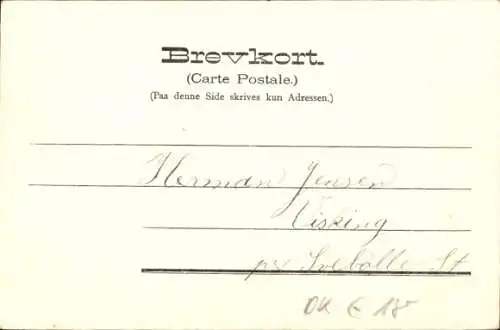 Brevkort.
(Carte Postale.)
(Paa denne Side skrives kun Adressen.)
Herman Jensen
Visking
pr Svebølle St
DK € 18